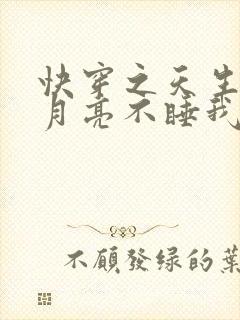 快穿之天生
月亮不睡我
不顧發绿的葉